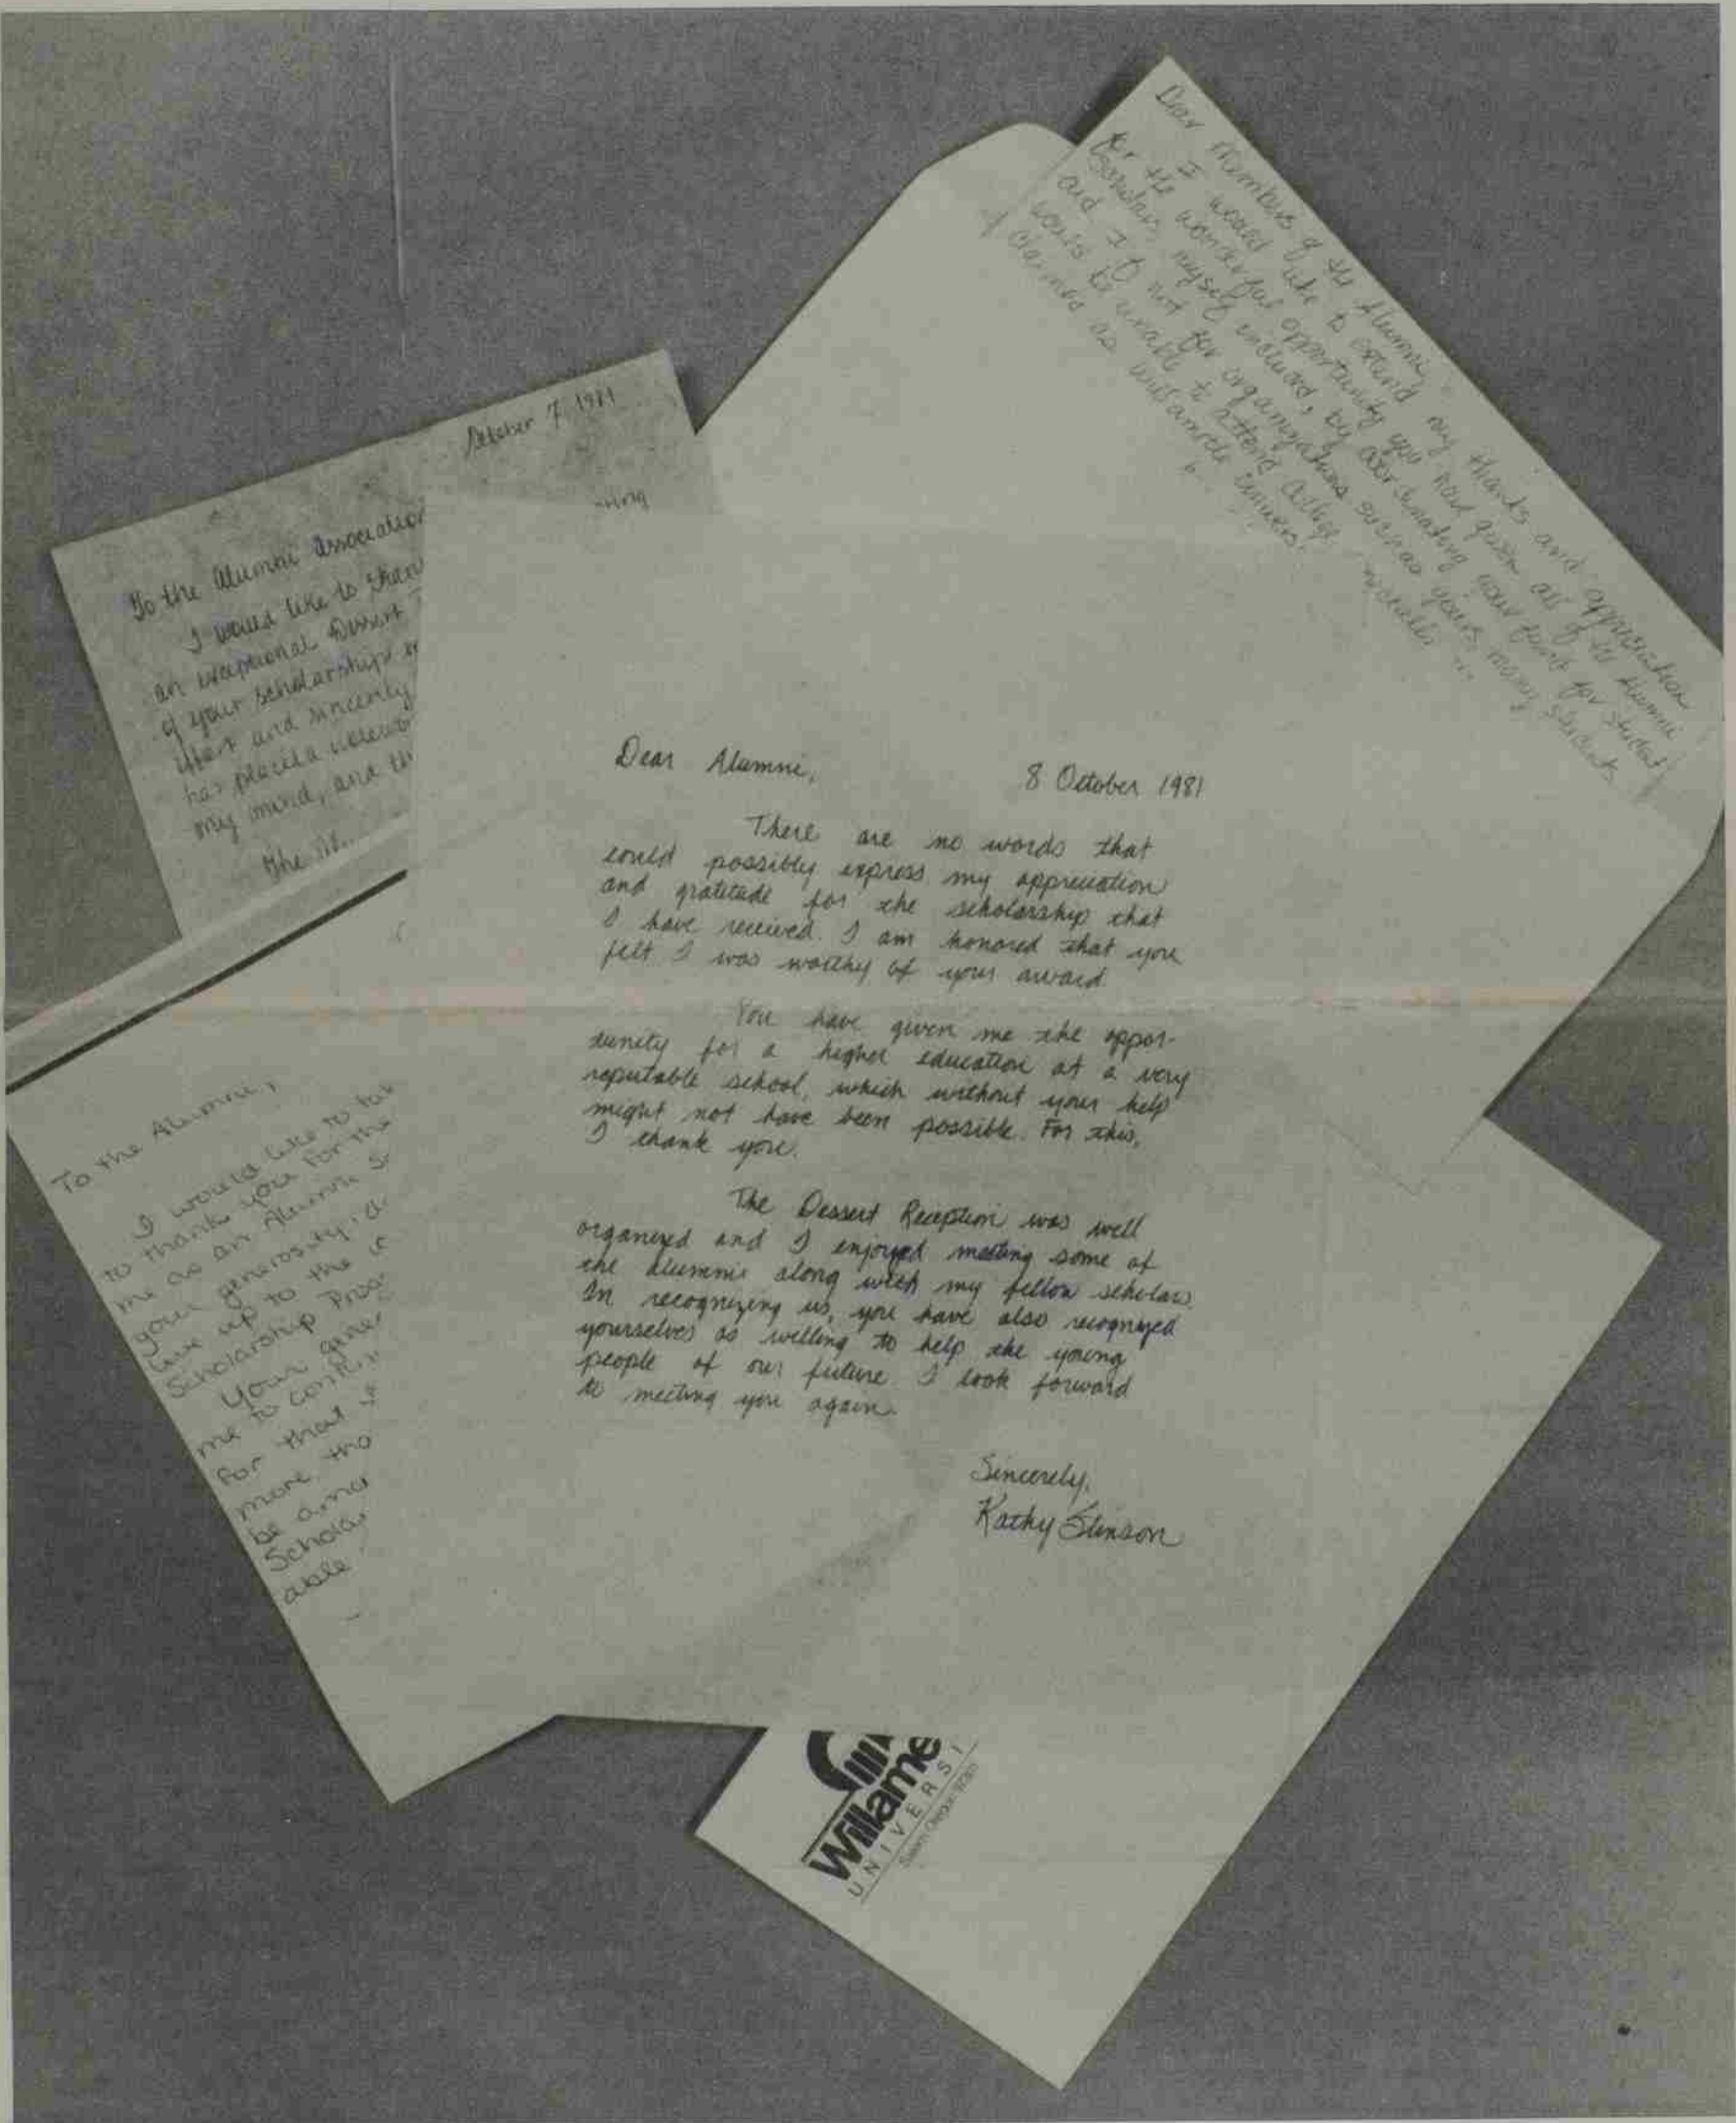 October 7, 1981
To the Alumni Association
I would like to
an exceptional Dessert
of your scholarship
and sincerely
has placed a
my mind, and
the
Dear Members of the Alumni,
I would like to extend my thanks and appreciation
for the wonderful opportunity you have given all of the Alumni
Scholars, myself included, by your funds for student
aid. If not for organizations such as yours, many students
would be unable to attend college
as Willamette
Dear Alumni,
8 October 1981
There are no words that
could possibly express my appreciation
and gratitude for the scholarship that
I have received. I am honored that you
felt I was worthy of your award.
You have given me the oppor-
tunity for a higher education at a very
reputable school, which without your help
might not have been possible. For this,
I thank you.
The Dessert Reception was well
organized and I enjoyed meeting some of
the alumni along with my fellow scholars.
In recognizing us, you have also recognized
yourselves as willing to help the young
people of our future. I look forward
to meeting you again.
Sincerely,
Kathy Stinson
To the Alumni,
I would like to
to thank you for the
me as an Alumni
your generosity,
live up to the
Scholarship
Your
me to
for that
more
be
able
Willame
UNIVERSI
Salem, Oregon 97301